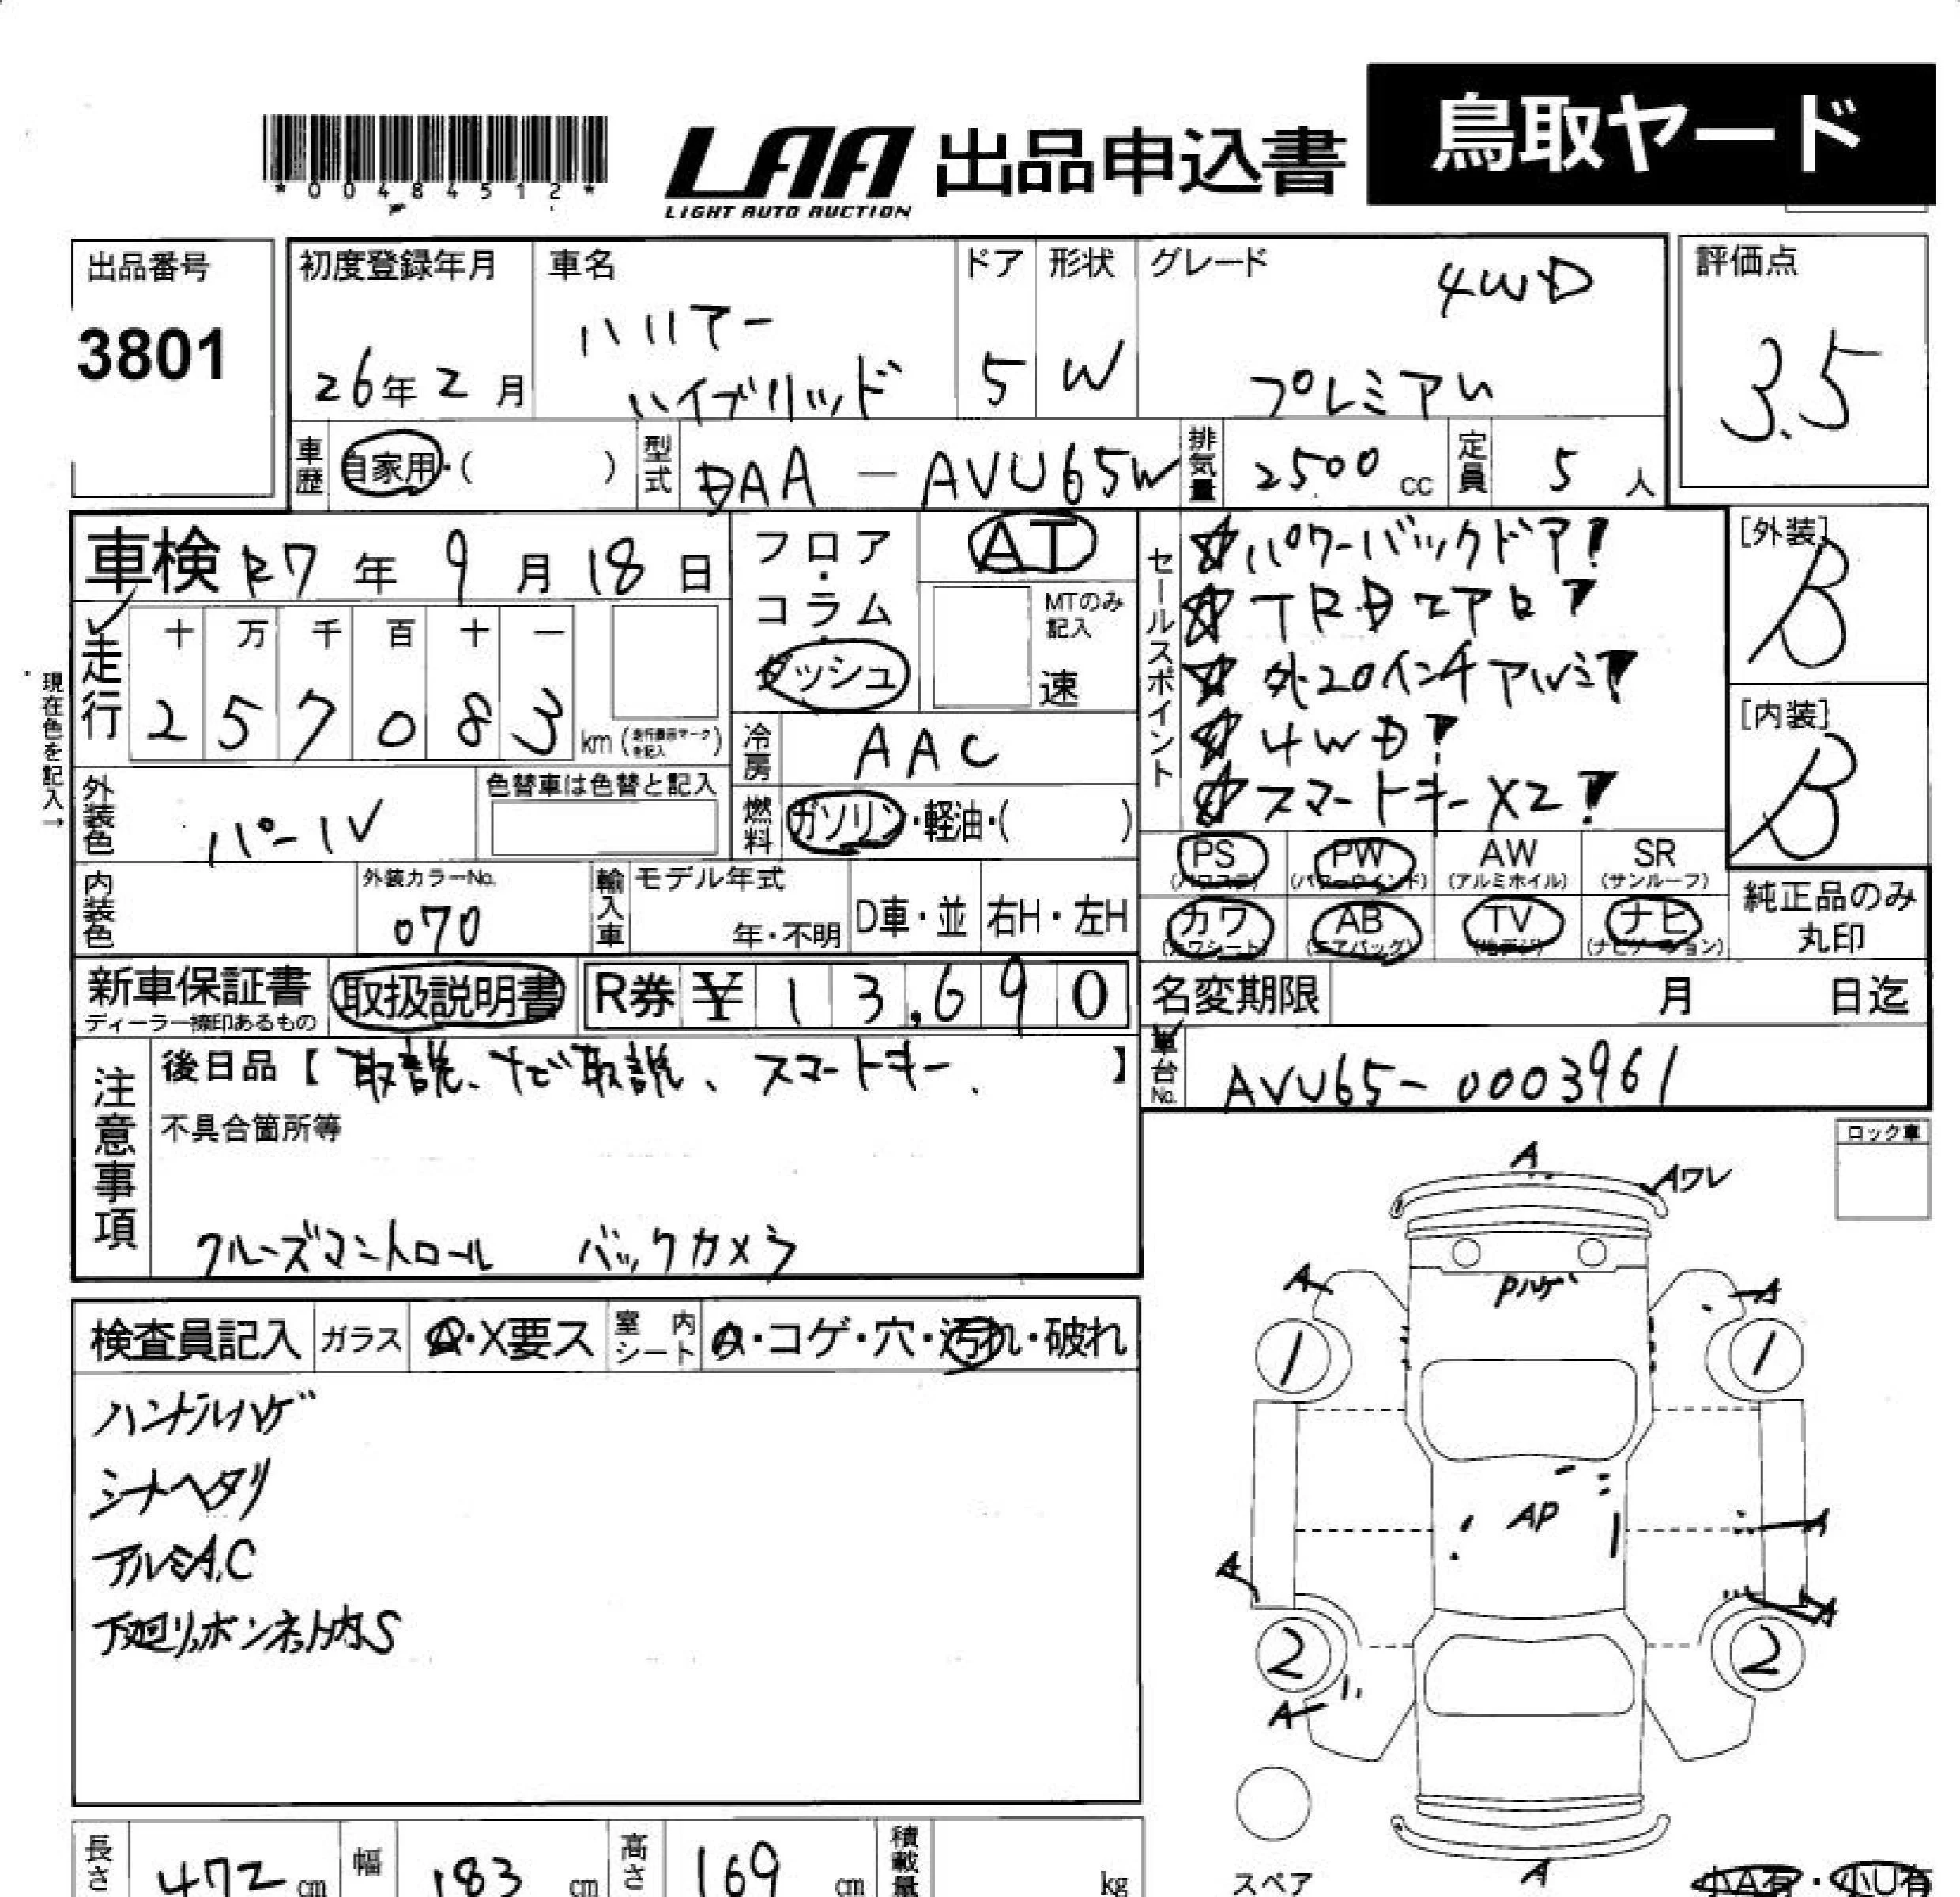 鳥取ヤード
*00484512*
LAA 出品申込書
LIGHT AUTO AUCTION
出品番号
3801
初度登録年月
26年2月
車名
ハリアー
ハイブリッド
ドア
5
形状
W
グレード
4WD
プレミアム
評価点
3.5
車歴 自家用・( )
型式 DAA-AVU65W
排気量 2500 cc
定員 5 人
車検 R7年9月18日
フロア・コラム・ダッシュ
AT
MTのみ記入
速
セールスポイント
☆パワーバックドア!
☆TRDエアロ!
☆外20インチアルミ!
☆4WD!
☆スマートキーX2!
[外装]
B
[内装]
B
現在色を記入→
走行
十 万 千 百 十 一
2 5 7 0 8 3 km (走行表示マークを記入)
冷房 AAC
外装色 パール
色替車は色替と記入
燃料 ガソリン・軽油・( )
PS (パワステ)
PW (パワーウインド)
AW (アルミホイル)
SR (サンルーフ)
内装色
外装カラーNo.
070
輸入車
モデル年式
年・不明
D車・並
右H・左H
カワ (カワシート)
AB (エアバッグ)
TV (地デジ)
ナビ (ナビゲーション)
純正品のみ
丸印
新車保証書
ディーラー捺印あるもの
取扱説明書
R券 ¥ 13,690
名変期限 月 日迄
車台No. AVU65-0003961
注意事項
後日品【 取説、ナビ取説、スマートキー. 】
不具合箇所等
クルーズコントロール バックカメラ
ロック車
A
Aワレ
A
Pハゲ
A
1
1
検査員記入 ガラス A・X要ス 室内シート A・コゲ・穴・汚れ・破れ
ハンドルハゲ
シートヘタリ
アルミA,C
下廻り,ボンネット内S
AP
A
A
A
2
2
A
スペア
A
小A有・小U有
長さ 472 cm
幅 183 cm
高さ 169 cm
積載量 kg